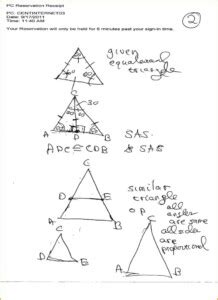 PC Reservation Receipt
PC: CENTINTERNET03
Date: 9/17/2011
Time: 11:40 AM
Your Reservation will only be held for 6 minutes past your sign-in time.
2
given
equilateral
triangle
C
30
A D B
SAS
ADC ≅ CDB & SAS
C
D E
A B
similar
triangle
all
angles
are same
all side
are
proportional
C
D E
C
A B